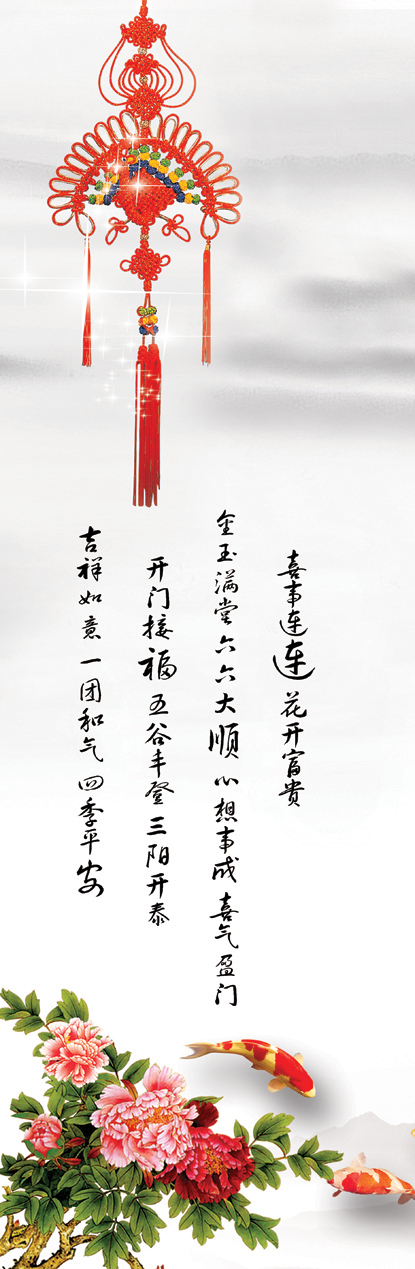 喜事连连 花开富贵
金玉满堂 六六大顺 心想事成 喜气盈门
开门接福 五谷丰登 三阳开泰
吉祥如意 一团和气 四季平安